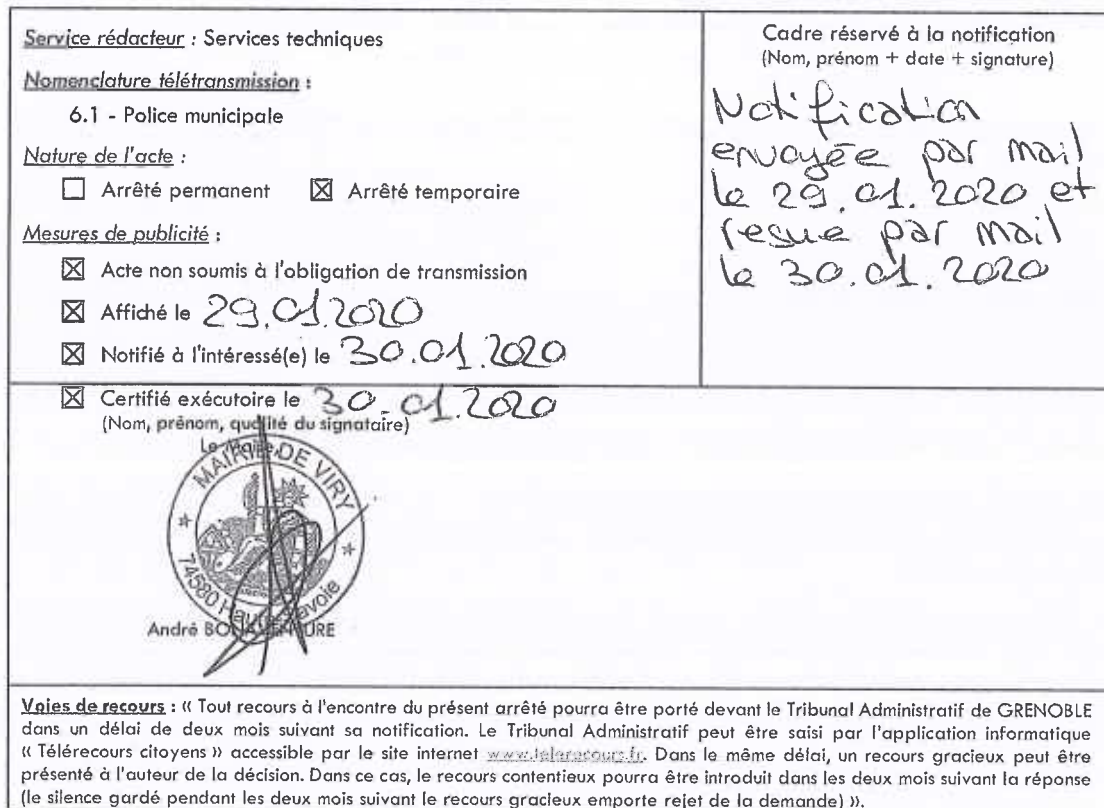 Service rédacteur : Services techniques
Nomenclature télétransmission :
6.1 - Police municipale
Nature de l'acte :
☐ Arrêté permanent ☒ Arrêté temporaire
Mesures de publicité :
☒ Acte non soumis à l'obligation de transmission
☒ Affiché le 29.01.2020
☒ Notifié à l'intéressé(e) le 30.01.2020
Cadre réservé à la notification
(Nom, prénom + date + signature)
Notification
envoyée par mail
le 29.01.2020 et
resue par mail
le 30.01.2020
☒ Certifié exécutoire le 30.01.2020
(Nom, prénom, qualité du signataire)
Le Maire,
MAIRIE DE VIRY
74580 Haute-Savoie
André BONAVENTURE
Voies de recours : « Tout recours à l'encontre du présent arrêté pourra être porté devant le Tribunal Administratif de GRENOBLE
dans un délai de deux mois suivant sa notification. Le Tribunal Administratif peut être saisi par l'application informatique
« Télérecours citoyens » accessible par le site internet www.telerecours.fr. Dans le même délai, un recours gracieux peut être
présenté à l'auteur de la décision. Dans ce cas, le recours contentieux pourra être introduit dans les deux mois suivant la réponse
(le silence gardé pendant les deux mois suivant le recours gracieux emporte rejet de la demande) ».